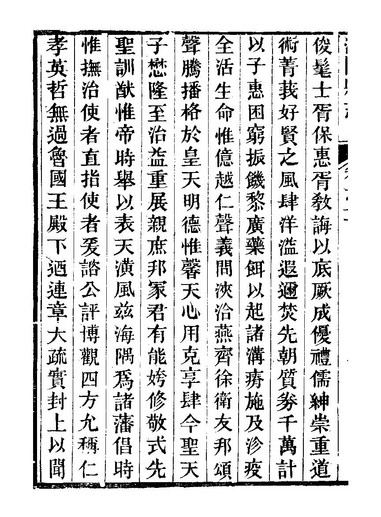 俊髦士胥保惠胥教誨以底厥成優禮儒紳崇重道
術菁莪好賢之風肆洋溢遐邇焚先朝質劵千萬計
以子惠困窮振饑黎廣藥餌以起諸溝瘠施及沴疫
全活生命惟億越仁聲義問浹洽燕齊徐衛友邦頌
聲騰播格於皇天明德惟馨天心用克享肆今聖天
子懋隆至治益重展親庶邦冢君有能姱修敬式先
聖訓猷惟帝時舉以表天潢風茲海隅爲諸藩倡時
惟撫治使者直指使者爰諮公評博觀四方允稱仁
孝英哲無過魯國王殿下迺連章大疏實封上以聞